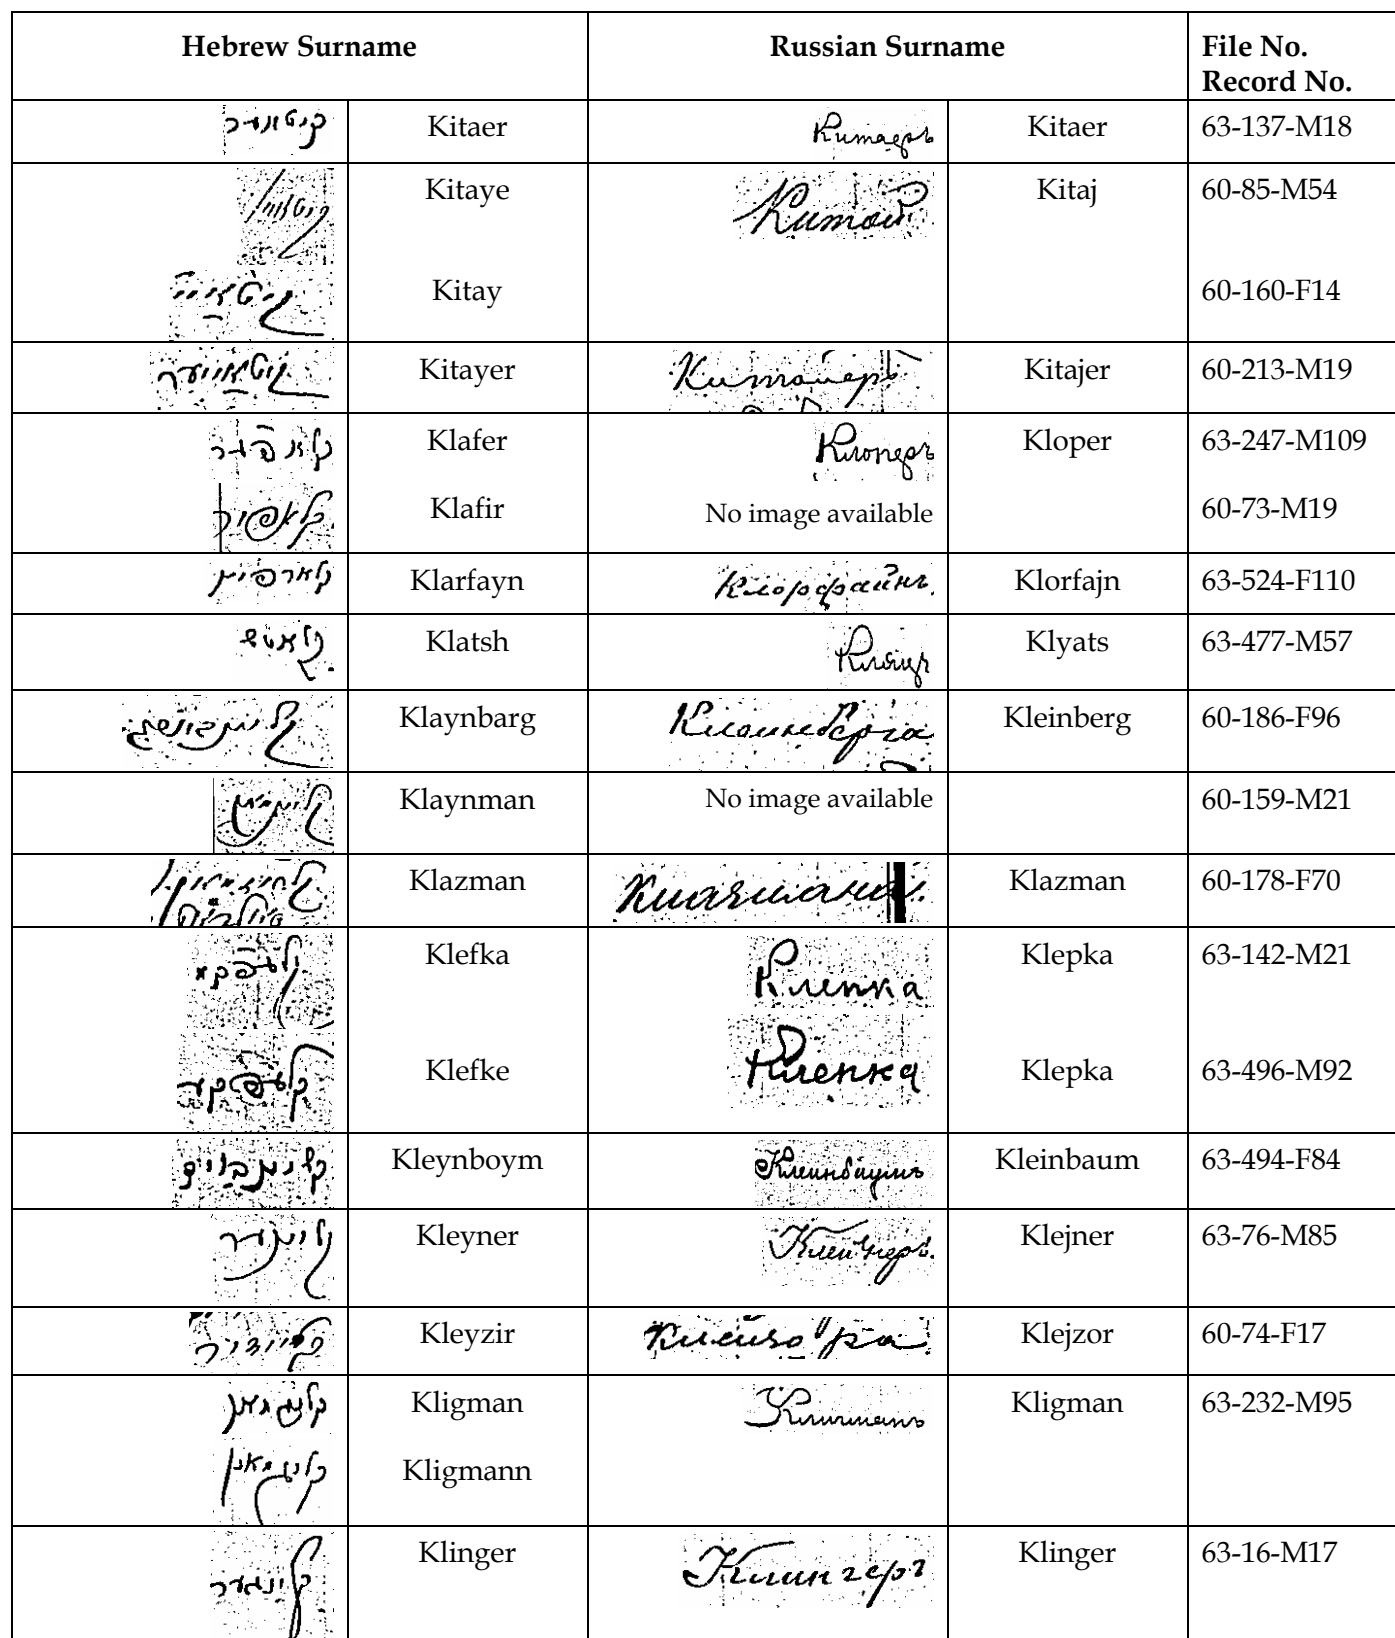 Hebrew Surname Russian Surname File No. Record No.
קיטאער Kitaer Китаеръ Kitaer 63-137-M18
Kitaye Китай Kitaj 60-85-M54
קיטאיי Kitay 60-160-F14
קיטאייער Kitayer Китайеръ Kitajer 60-213-M19
קלאפער Klafer Клоперъ Kloper 63-247-M109
קלאפיר Klafir No image available 60-73-M19
קלארפיין Klarfayn Клорфайнъ Klorfajn 63-524-F110
קלאטש Klatsh Klyats 63-477-M57
Klaynbarg Kleinberg 60-186-F96
Klaynman No image available 60-159-M21
Klazman Klazman 60-178-F70
קלעפקא Klefka Клепка Klepka 63-142-M21
קלעפקע Klefke Клепка Klepka 63-496-M92
קליינבוים Kleynboym Клеинбаумъ Kleinbaum 63-494-F84
קליינער Kleyner Клейнеръ Klejner 63-76-M85
קלייזיר Kleyzir Klejzor 60-74-F17
קליגמאן Kligman Клигманъ Kligman 63-232-M95
Kligmann
קלינגער Klinger Клингеръ Klinger 63-16-M17